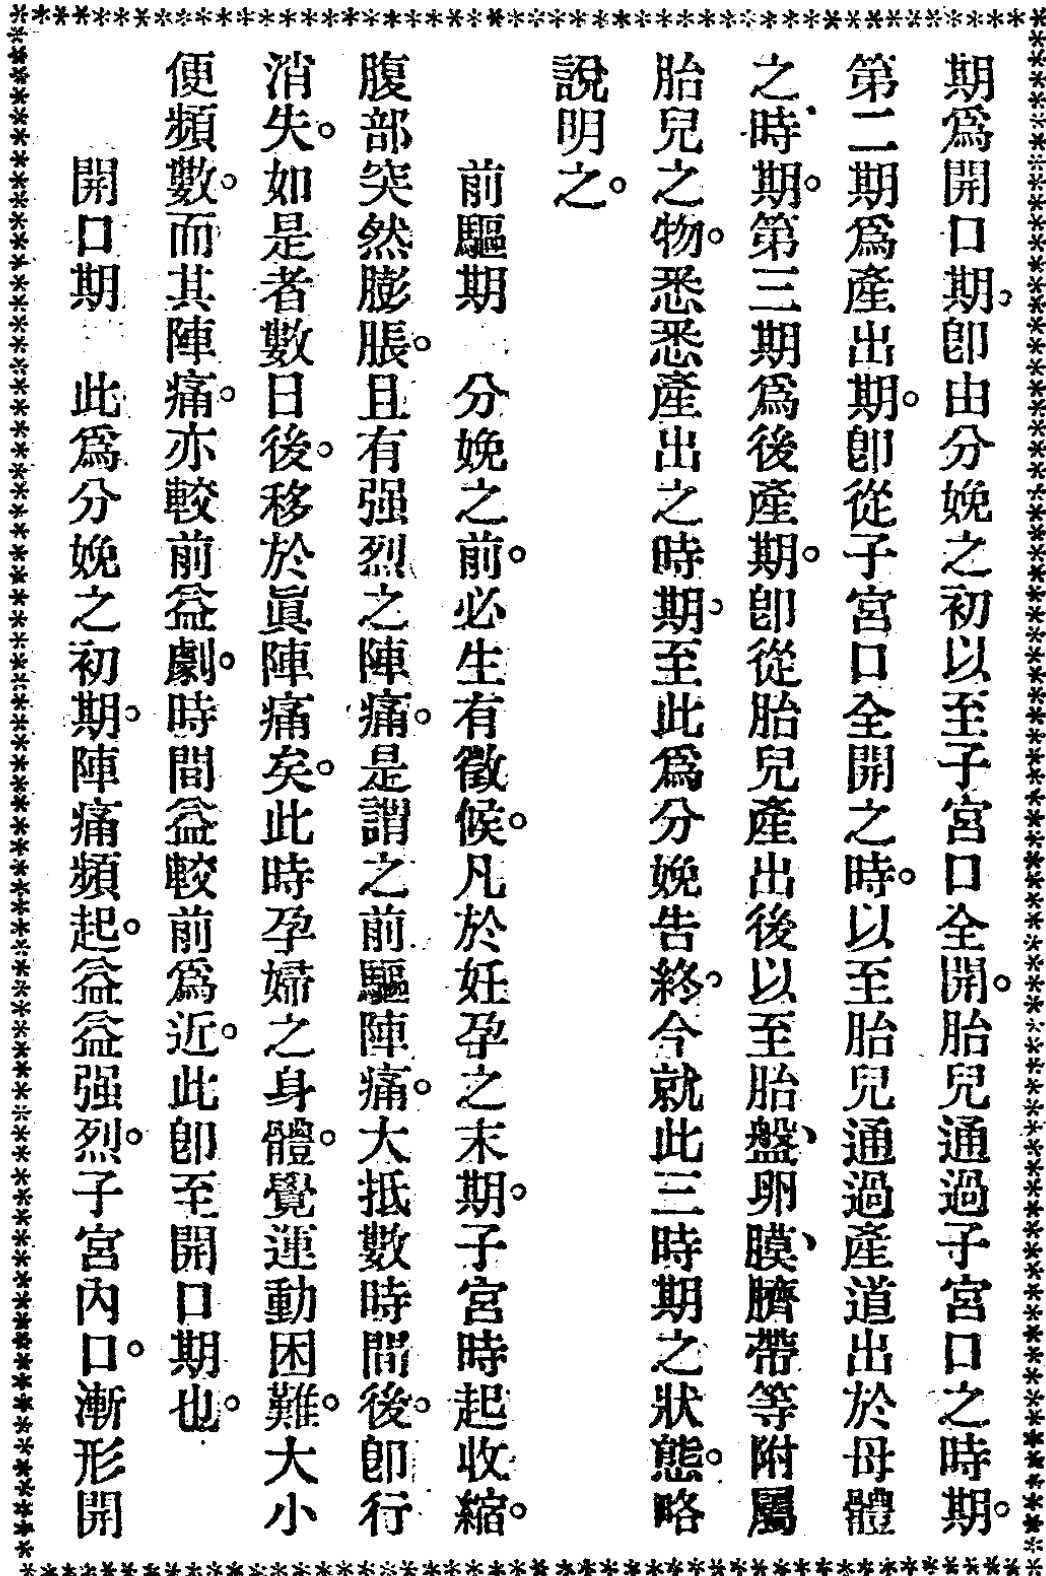 期爲開口期。卽由分娩之初以至子宮口全開。胎兒通過子宮口之時期。
第二期爲產出期。卽從子宮口全開之時。以至胎兒通過產道出於母體
之時期。第三期爲後產期。卽從胎兒產出後以至胎盤、卵膜、臍帶等附屬
胎兒之物。悉悉產出之時期。至此爲分娩告終。今就此三時期之狀態。略
說明之。
前驅期　分娩之前。必生有徵候。凡於妊孕之末期。子宮時起收縮。
腹部突然膨脹。且有强烈之陣痛。是謂之前驅陣痛。大抵數時間後。卽行
消失。如是者數日後。移於眞陣痛矣。此時孕婦之身體。覺運動困難。大小
便頻數。而其陣痛。亦較前益劇。時間益較前爲近。此卽至開口期也。
開口期　此爲分娩之初期。陣痛頻起。益益强烈。子宮內口。漸形開